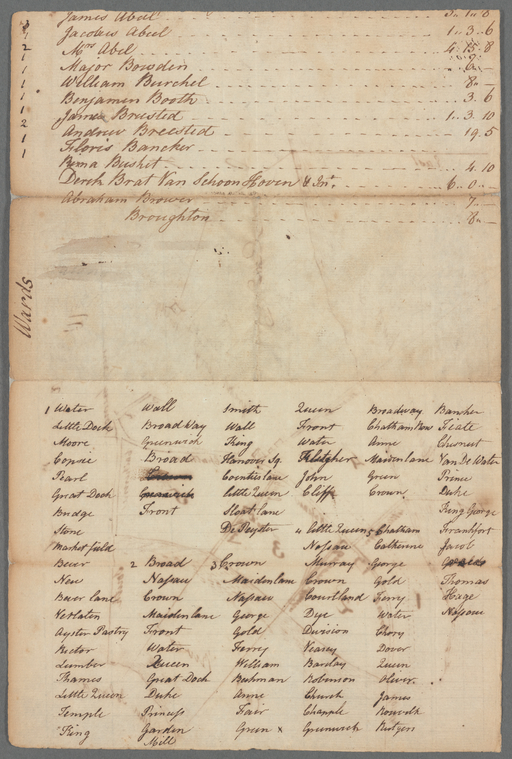 James Abeel 3,, 1,, 6
Jacobus Abeel 1,, 3,, 6
2 Mrs Abel 4 15 8
1 Major Bowden
1 William Burchel 8
1 Benjamin Booth 3. 6
1 James Brested 1,, 3. 10
2 Andrew Breested 19. 5
1 Floris Bancker
1 Rema Bushet 4. 10
Derck Brat Van Schoon Hoven & Jnr. 6,, 0,,
Abraham Brower 7
Broughton 8
Wards
1 Water Wall Smith Queen Broadway Banker
Little Dock Broad Way Wall Front Chatham Row
Moore Greenwich King Water Anne Chesnut
Broad Hanover Sq. Fletcher Maiden lane Van De Water
Pearl Counties lane John Green Prince
Great Dock Greenwich Little Queen Cliff Crown Duke
Bridge Front Sloat lane King George
Stone De Peyster 4 Little Queen 5 Chatham Frankfort
Market field Nassau Catherine Jacob
Bever 2 Broad 3 Crown Murray George
New Nassau Maiden lane Crown Gold Thomas
Bever lane Crown Nassau Courtland Ferry Hage
Verlaten Maiden lane George Dye Water Nassau
Oyster Pastry Front Gold Division Chery
Rector Water Ferry Veasey Dover
Lumber Queen William Barclay Queen
Thames Great Dock Beekman Robinson Oliver
Little Queen Duke Anne Church James
Temple Princess Fair Chapple Roosvelt
King Garden Green x Greenwich Rutgers
Mill